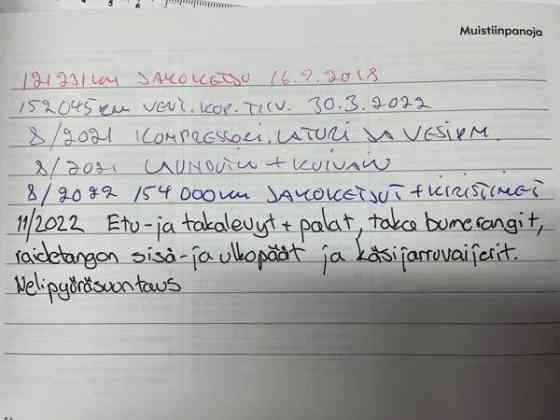 Muistiinpanoja
121231km JAKOKETJU 16.9.2018
152045km VENT.KOP.TIIV. 30.3.2022
8/2021 KOMPRESSORI, LATURI JA VESIPM.
8/2021 LAUHDUTIN + KUIVAIN
8/2022 154000km JAKOKETJUT + KIRISTIMET
11/2022 Etu-ja takalevyt + palat, taka bumerangit,
raidetangon sisä-ja ulkopäät ja käsijarruvaijerit.
Nelipyöräsuuntaus